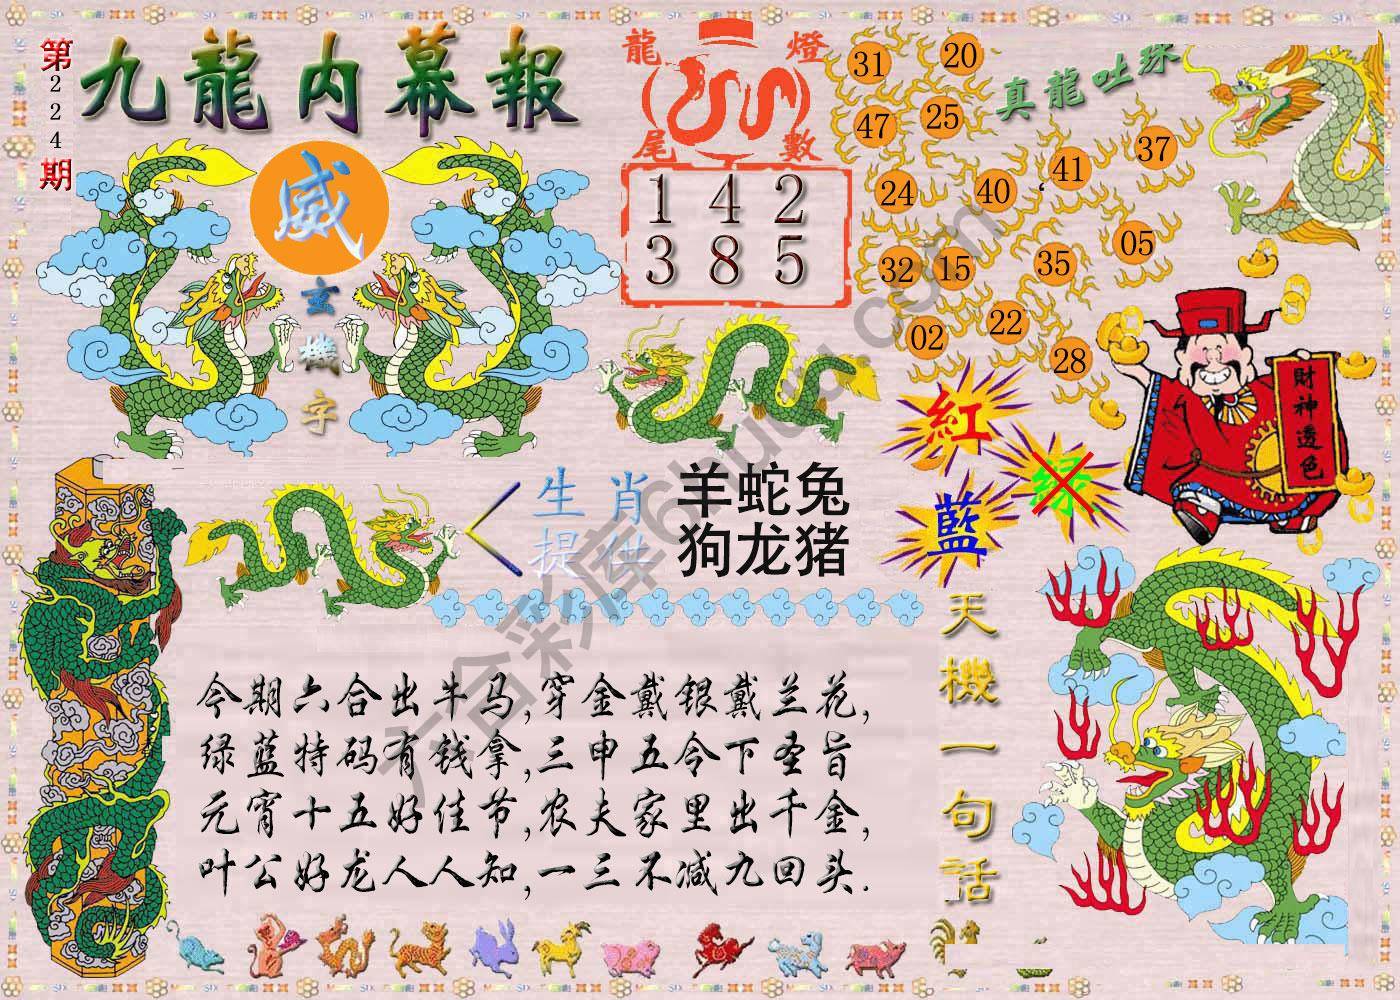 第224期
九龍内幕報
威
玄機字
龍燈
尾數
1 4 2
3 8 5
31 20
47 25
24 40 41 37
32 15 35 05
02 22 28
真龍吐珠
財神透色
紅
绿
藍
生肖 羊蛇兔
提供 狗龙猪
天機一句話
今期六合出牛马,穿金戴银戴兰花,
绿蓝特码有钱拿,三申五令下圣旨
元宵十五好佳节,农夫家里出千金,
叶公好龙人人知,一三不减九回头.
六合彩库6huu.com